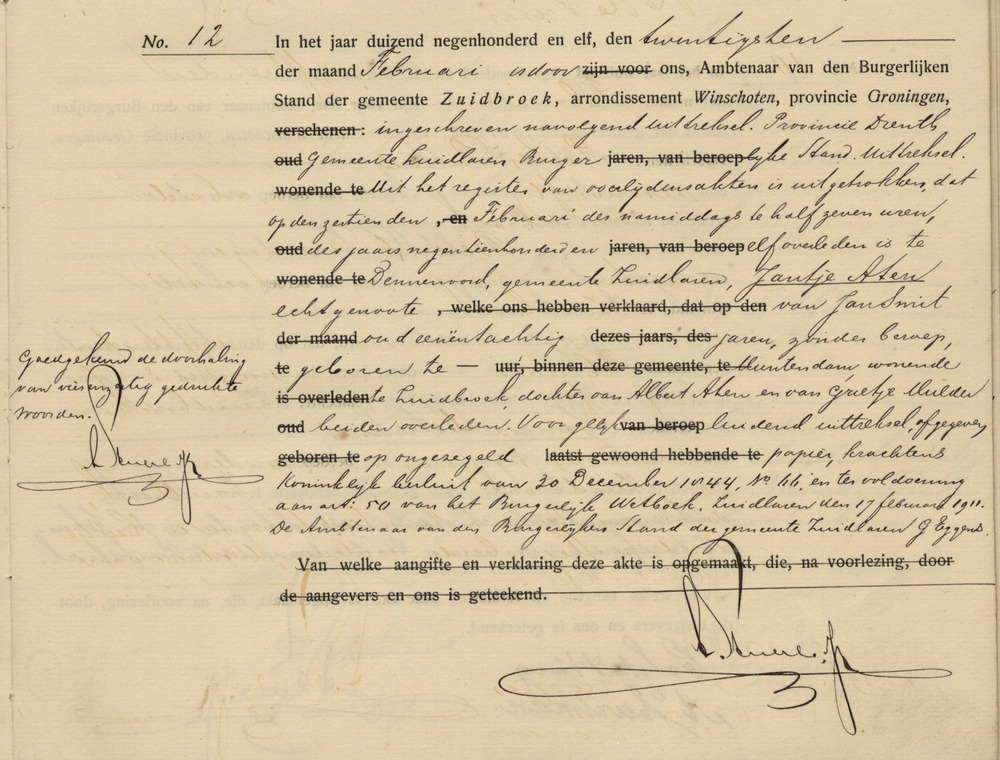 No. 12 In het jaar duizend negenhonderd en elf, den twintigsten
der maand Februari is door zijn voor ons, Ambtenaar van den Burgerlijken
Stand der gemeente Zuidbroek, arrondissement Winschoten, provincie Groningen,
verschenen: ingeschreven navolgend uittreksel. Provincie Drenthe
oud Gemeente Zuidlaren Burger jaren, van beroep lijke Stand. Uittreksel.
wonende te Uit het register van overlijdensakten is uitgetrokken, dat
op den zestienden , en Februari des namiddags te half zeven uren,
oud des jaars negentienhonderd en jaren, van beroep elf overleden is te
wonende te Dennenoord, gemeente Zuidlaren, Jantje Aten
echtgenoote , welke ons hebben verklaard, dat op den van Jan Smit
der maand oud eenentachtig dezes jaars, des jaren, zonder beroep,
te geboren te — uur, binnen deze gemeente, te Muntendam, wonende
is overleden te Zuidbroek, dochter van Albert Aten en van Grietje Mulder
oud beiden overleden. Voor gelijk van beroep luidend uittreksel, afgegeven
geboren te op ongezegeld laatst gewoond hebbende te papier, krachtens
Koninklijk besluit van 30 December 1844, No 66, en ter voldoening
aan art: 50 van het Burgerlijk Wetboek. Zuidlaren den 17 februari 1911.
De Ambtenaar van den Burgerlijken Stand der gemeente Zuidlaren G Eggens.
Van welke aangifte en verklaring deze akte is opgemaakt, die, na voorlezing, door
de aangevers en ons is geteekend.
Goedgekeurd de doorhaling
van vierenzestig gedrukte
woorden.